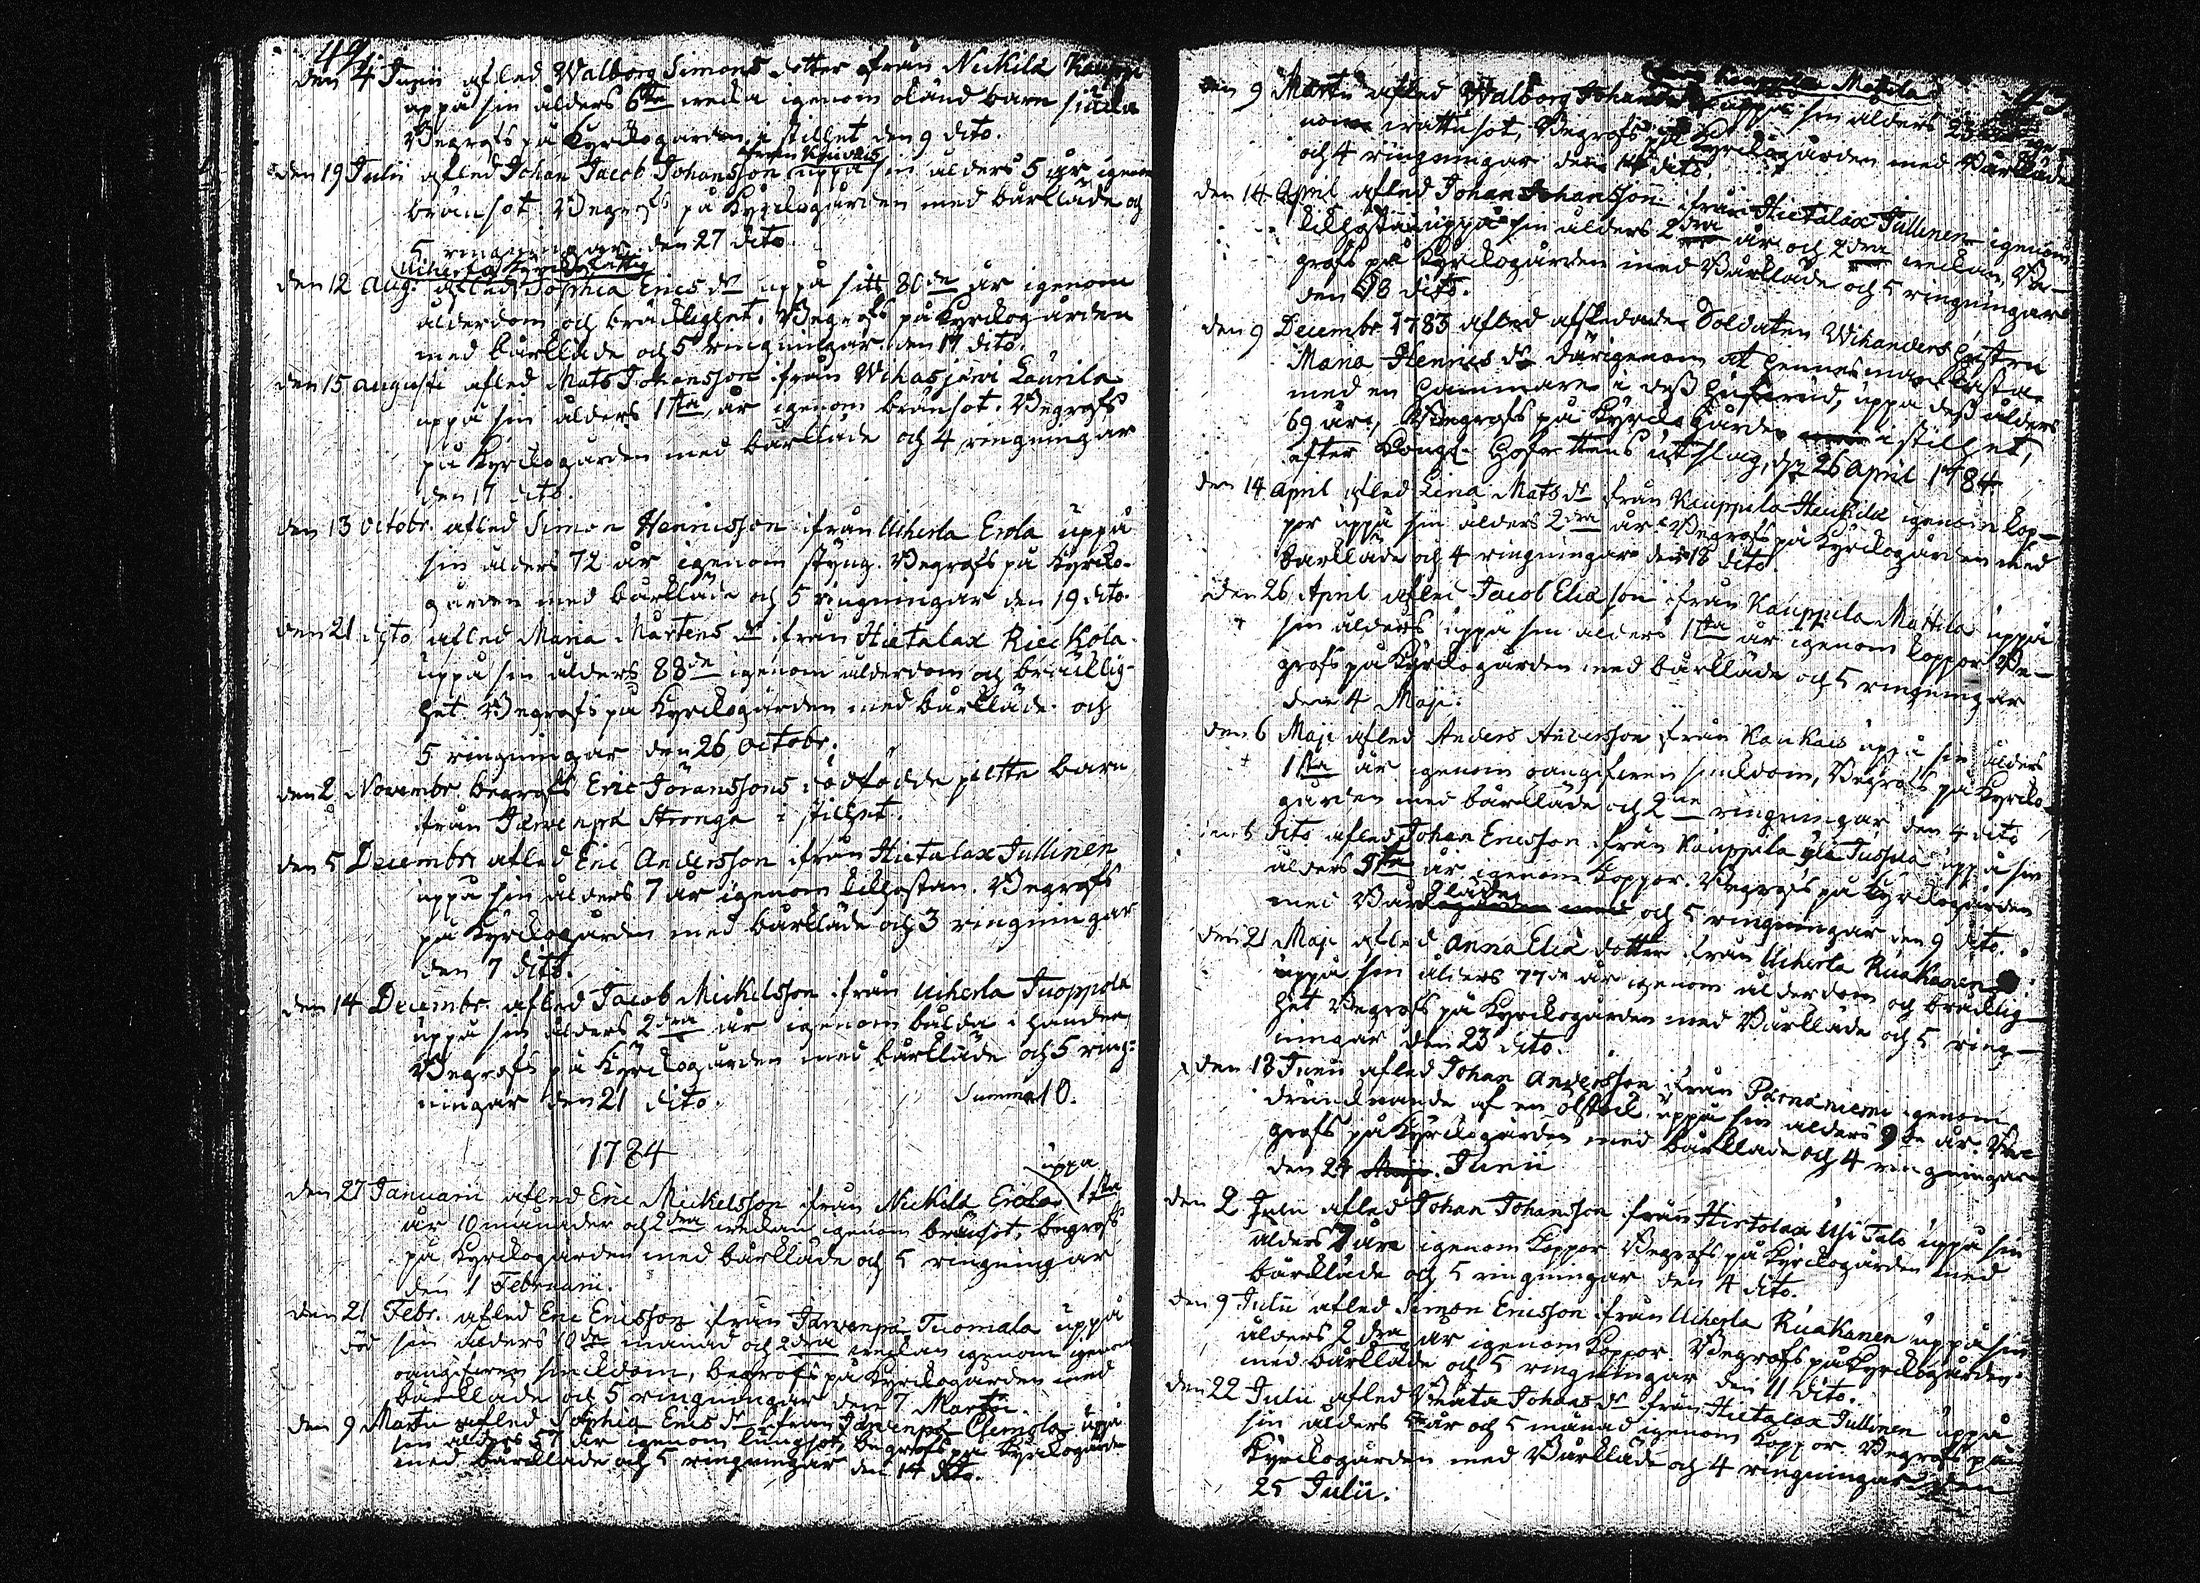 42.
den 4 Junii afled Walborg Simons dotter ifrån Nickilä Kauppi
uppå sin ålders 6te wecka igenom okänd barn siukla
Begrofs på Kyrckogården i stillhet den 9 dito.
ifrån Kaukais
den 19 Julii afled Johan Jacob Johansson uppå sin ålders 5 år igenom
bränsot Begrofs på Kyrckogården med bårkläde och
5 ringningar den 27 dito.
Uiherla Kyrckofattig
den 12 Aug: afled Sophia Erics dr uppå sitt 80de år igenom
ålderdom och bräcklighet. Begrofs på Kyrckogården
med bårkläde och 5 ringningar den 17 dito.
den 15 augusti afled Mats Johansson ifrån Wihasjärvi Laurila
uppå sin ålders 1sta år igenom bränsot. Begrofs
på Kyrckogården med bårkläde och 4 ringningar
den 17 dito.
den 13 octobr. afled Simon Henricsson ifrån Uiherla Erola uppå
sin ålders 72 år igenom styng. Begrofs på Kyrcko-
gården med bårkläde och 5 ringningar den 19 dito.
den 21 dito afled Maria Mårtens dr ifrån Hietalax Rieckola
uppå sin ålders 88de igenom ålderdom och bräcklig-
het Begrofs på Kyrckogården med bårkläde och
5 ringningar den 26 octobr.
den 2 Novembr begrofs Eric Jöranssons dödfödde piltte barn
ifrån Järvenpä Stronga i stillhet.
den 5 Decembr afled Eric Andersson ifrån Hietalax Jullinen
uppå sin ålders 7 år igenom kikhostan. Begrofs
på Kyrckogården med bårkläde och 3 ringningar
den 7 dito.
den 14 Decembr. afled Jacob Mickelsson ifrån Uiherla Tuoppola
uppå sin ålders 2dra år igenom bålda i handen
Begrofs på Kyrckogården med bårkläde och 5 ring-
ningar den 21 dito. Summa 10.
1784
uppå
den 27 Januarii afled Eric Mickelsson ifrån Nickilä Erola 1sta
år 10 månader och 2dra weckan igenom bränsot, begrofs
på Kyrckogården med bårkläde och 5 ringningar
den 1 Februarii.
den 21 Febr. afled Eric Ericsson ifrån Järvenpä Tuomala uppå
sin ålders 10de månad och 2dra weckan igenom igenom
oangifwen siuckdom, begrofs på Kyrckogården med
bårkläde och 5 ringningar den 7 Martii.
den 9 Martii afled Sophia Erics dr ifrån Järvenpä Clemola uppå
sin ålders 57 år igenom lungsot, begrofs på Kyrckogården
med bårkläde och 5 ringningar den 14 dito.
43.
Kauppila Matila
den 9 Martii afled Walborg Johans dr uppå sin ålders 23 ige-
nom wattusot, Begrofs på Kyrckogården med Bårkläde
och 4 ringningar den 14 dito.
den 14 April afled Johan Johansson ifrån Hietalax Jullinen igenom
kikhostan uppå sin ålders 2dra år och 2dra weckan, Be-
grofs på Kyrckogården med Bårkläde och 5 ringningar
den 18 dito.
den 9 Decembr 1783 afled afskedade Soldaten Wihanders hustru
Maria Henrics dr därigenom at hennes man kasta
med en hammare i dess hufwud, uppå dess ålders
69 åre, Begrofs på Kyrckogården i stillhet,
efter Kongl. Hofrettens utslag, d. 26 April 1784
den 14 April afled Lena Mats dr ifrån Kauppila Heickilä igenom kop-
por uppå sin ålders 2dra år Begrofs på Kyrckogården med
bårkläde och 4 ringningar den 18 dito.
den 26 April afled Jacob Eliæson ifrån Kauppila Mattila uppå
sin ålders uppå sin ålders 1sta år igenom koppor Be-
grofs på Kyrckogården med bårkläde och 5 ringningar
den 4 Maji.
den 6 Maji afled Anders Andersson ifrån Kaukais uppå sin ålders
1sta år igenom oangifwen siuckdom, Begrofs på Kyrcko-
gården med bårkläde och 2ne ringningar den 4 dito
den 6 dito afled Johan Ericsson ifrån Kauppila yla Jussila uppå sin
ålders 9de år igenom koppor. Begrofs på Kyrckogården
med Bårkläde och 5 ringningar den 9 dito.
den 21 Maji afled Anna Eliæ dotter ifrån Uiherla Ruakanen
uppå sin ålders 77de år igenom ålderdom och bräcklig-
het Begrofs på Kyrckogården med Bårkläde och 5 ring-
ningar den 23 dito.
den 18 Junii afled Johan Andersson ifrån Pärnäniemi igenom
drunknande af en ölstock uppå sin ålders 9de år. Be-
grofs på Kyrckogården med bårkläde och 4 ringningar
den 24 Maji. Junii
den 2 Julii afled Johan Johansson ifrån Hietalax Usi Talo uppå sin
ålders 7 åra igenom koppor Begrofs på Kyrckogården med
bårkläde och 5 ringningar den 4 dito.
den 9 Julii afled Simon Ericsson ifrån Uiherla Ruakanen uppå sin
ålders 2dra år igenom koppor Begrofs på Kyrckogården
med bårkläde och 5 ringningar den 11 dito.
den 22 Julii afled Beata Johans dr ifrån Hietalax Jullinen uppå
sin ålders år och 5 månad igenom koppor Begrofs på
Kyrckogården med Bårkläde och 4 ringningar den
25 Julii.